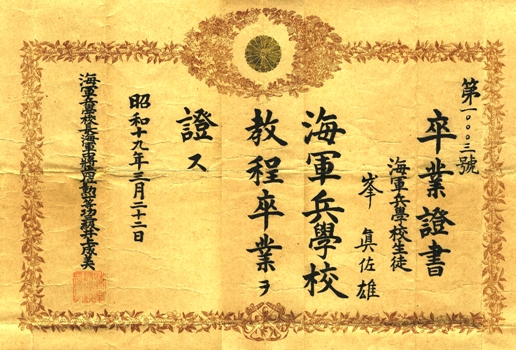 第一〇〇〇三號
卒業證書
海軍兵學校生徒
峯 眞佐雄
海軍兵學校
教程卒業ヲ
證ス
昭和十九年三月二十二日
海軍兵學校長海軍中將勲等功井上成美